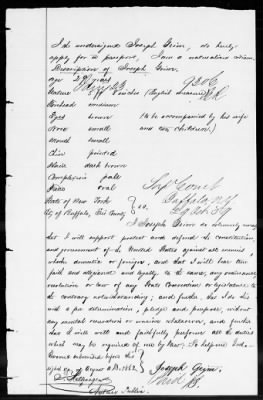 I the undersigned Joseph Grim, do hereby
apply for a passport, I am a naturalized citizen.
Description of Joseph Grim.
age 28 years
Stature 5 feet inches (English measure)
Forehead medium
Eyes brown (to be accompanied by his wife
Nose small and children)
Mouth small
Chin pointed
Hair dark brown
Complexion pale
Face oval
State of New York
City of Buffalo, Erie County } ss.
Buffalo N.Y.
I Joseph Grim do solemnly swear
that I will support protect and defend the constitution
and government of the United States against all enemies
whether domestic or foreign, and that I will bear true
faith and allegiance and loyalty to the same, any ordinance
resolution or law of any State Convention or legislature to
the contrary notwithstanding; and further, that I do this
with a full determination, pledge and purpose, without
any mental reservation or evasion whatsoever, and further
that I will well and faithfully perform all the duties
which may be required of me by law. So help me God.
Sworn & subscribed before this
day of August A.D. 1862 } Joseph Grim
Notary Public